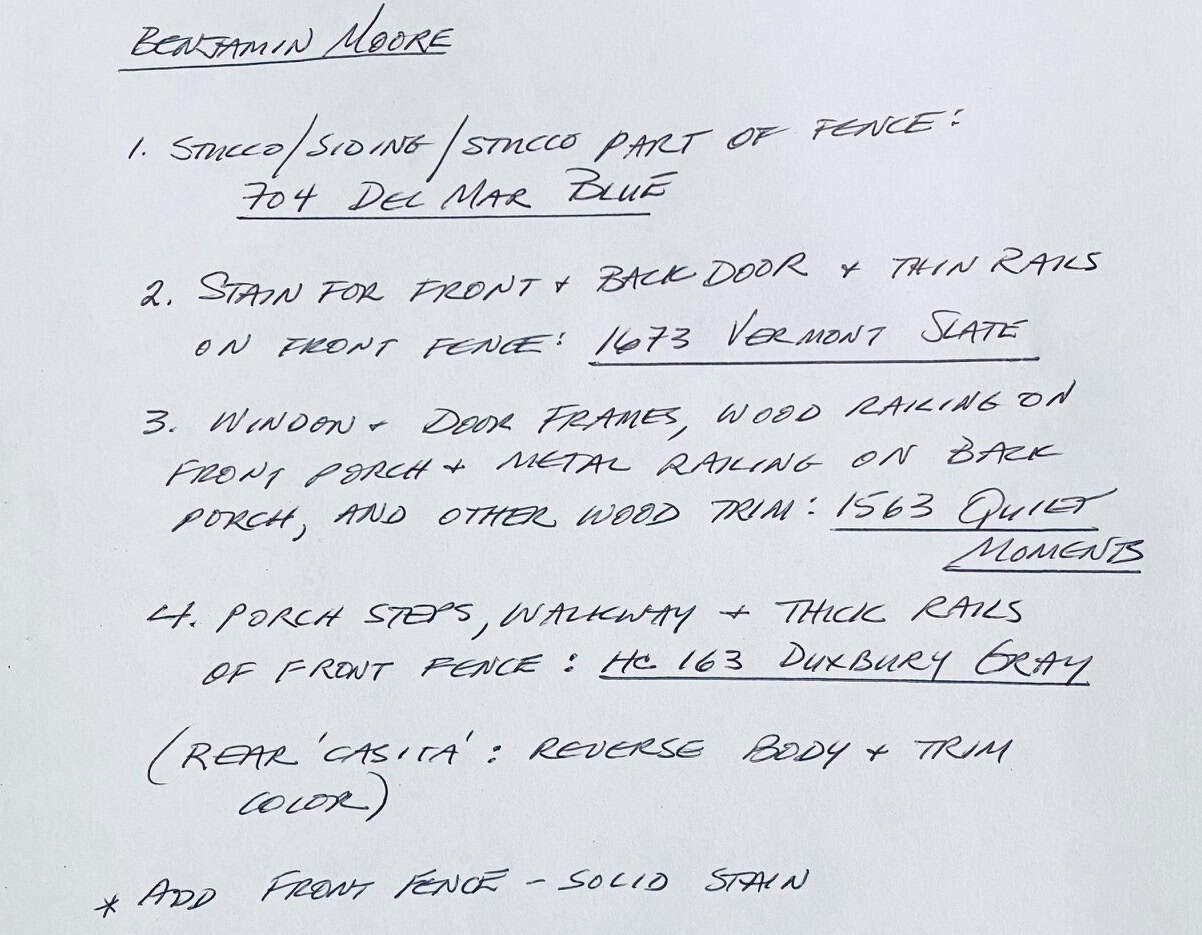 BENJAMIN MOORE
1. STUCCO/SIDING/STUCCO PART OF FENCE:
704 DEL MAR BLUE
2. STAIN FOR FRONT + BACK DOOR + THIN RAILS
ON FRONT FENCE: 1673 VERMONT SLATE
3. WINDOW + DOOR FRAMES, WOOD RAILING ON
FRONT PORCH + METAL RAILING ON BACK
PORCH, AND OTHER WOOD TRIM: 1563 QUIET
MOMENTS
4. PORCH STEPS, WALKWAY + THICK RAILS
OF FRONT FENCE: HC 163 DUXBURY GRAY
(REAR 'CASITA': REVERSE BODY + TRIM
COLOR)
* ADD FRONT FENCE - SOLID STAIN